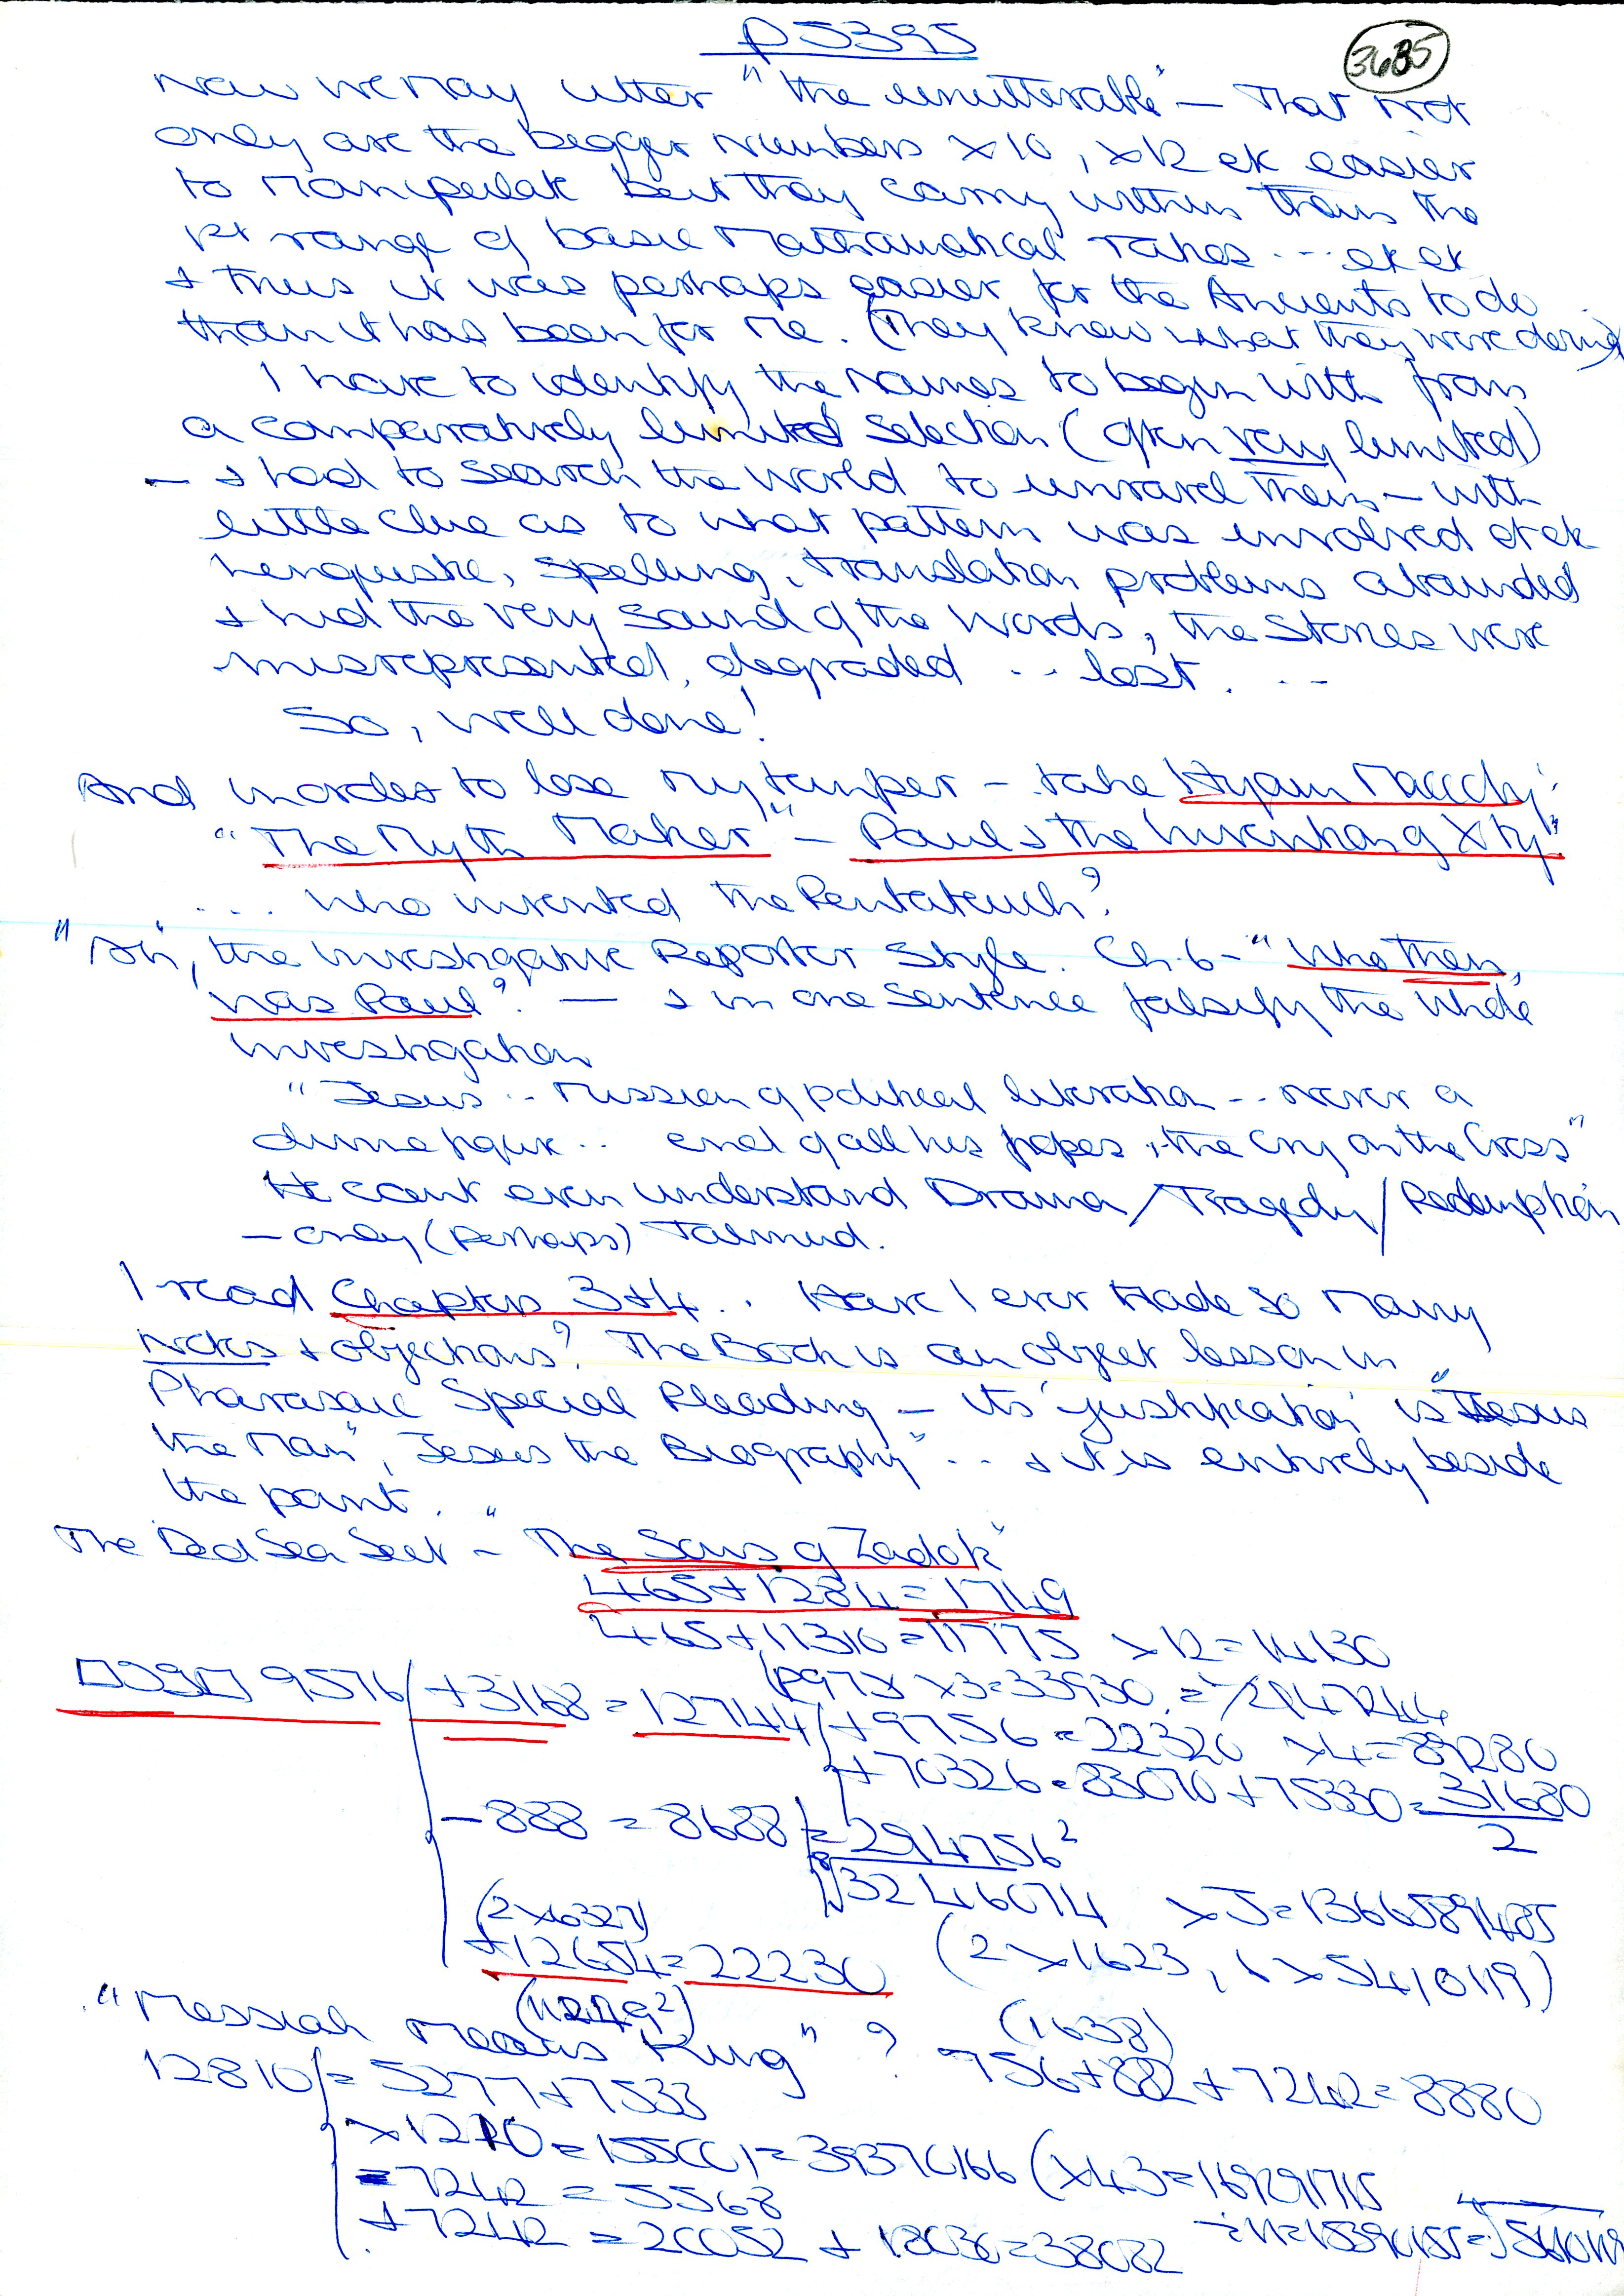 p5395
3685
Now we may utter "the unutterable" – That not
only are the bigger numbers x10, x12 etc easier
to manipulate but they carry within them the
1st range of basic Mathematical ... etc etc
& thus it was perhaps easier for the Ancients to do
than it has been for me. (They knew what they were doing)
I have to identify the names to begin with from
a comparatively limited selection (often very limited)
– & had to search the world to unravel them – with
little clue as to what pattern was involved etc
Linguistic, spelling, translation problems abounded
& hid the very sound of the words, the stories were
misrepresented, degraded .. lost. ..
So, well done!
And in order to lose my temper – take Hyam Maccoby
"The Myth Maker" – Paul & the Invention of Xty"
... who invented the Pentateuch?
"Ah", the Investigative Reporter Style. Ch.6 – "Who then,
was Paul? – & in one sentence falsify the whole
investigation
"Jesus .. mission of political liberation .. never a
divine figure .. end of all his hopes, the cry on the Cross"
He can't even understand Drama/Tragedy/Redemption
– only (perhaps) Talmud.
I read Chapters 3+4 .. Have I ever made so many
notes & objections? The Book is an object lesson in
Pharasaic Special Pleading – its 'justification' is "Jesus
the Man", Jesus the Biography" .. & it is entirely beside
the point.
The Dead Sea Sect – "The Sons of Zadok"
465+1284=1749
465+11310=11775 x12=14130
x3=33930
9576 +3168=12744 +9756=22320 x4=89280
+70326=83070+75330=31680
2
–888=8688 = 294756²
32446074 x5=1366589485
(2x6327)
+12654=22230 (2x1623, 6x5410119)
"Messiah Means King"? (1638)
12810 =5277+7533 756+882+7242=8880
x1210=155001=39370166 (x43=169291715
–7242=5568
+7242=20052+18030=38082